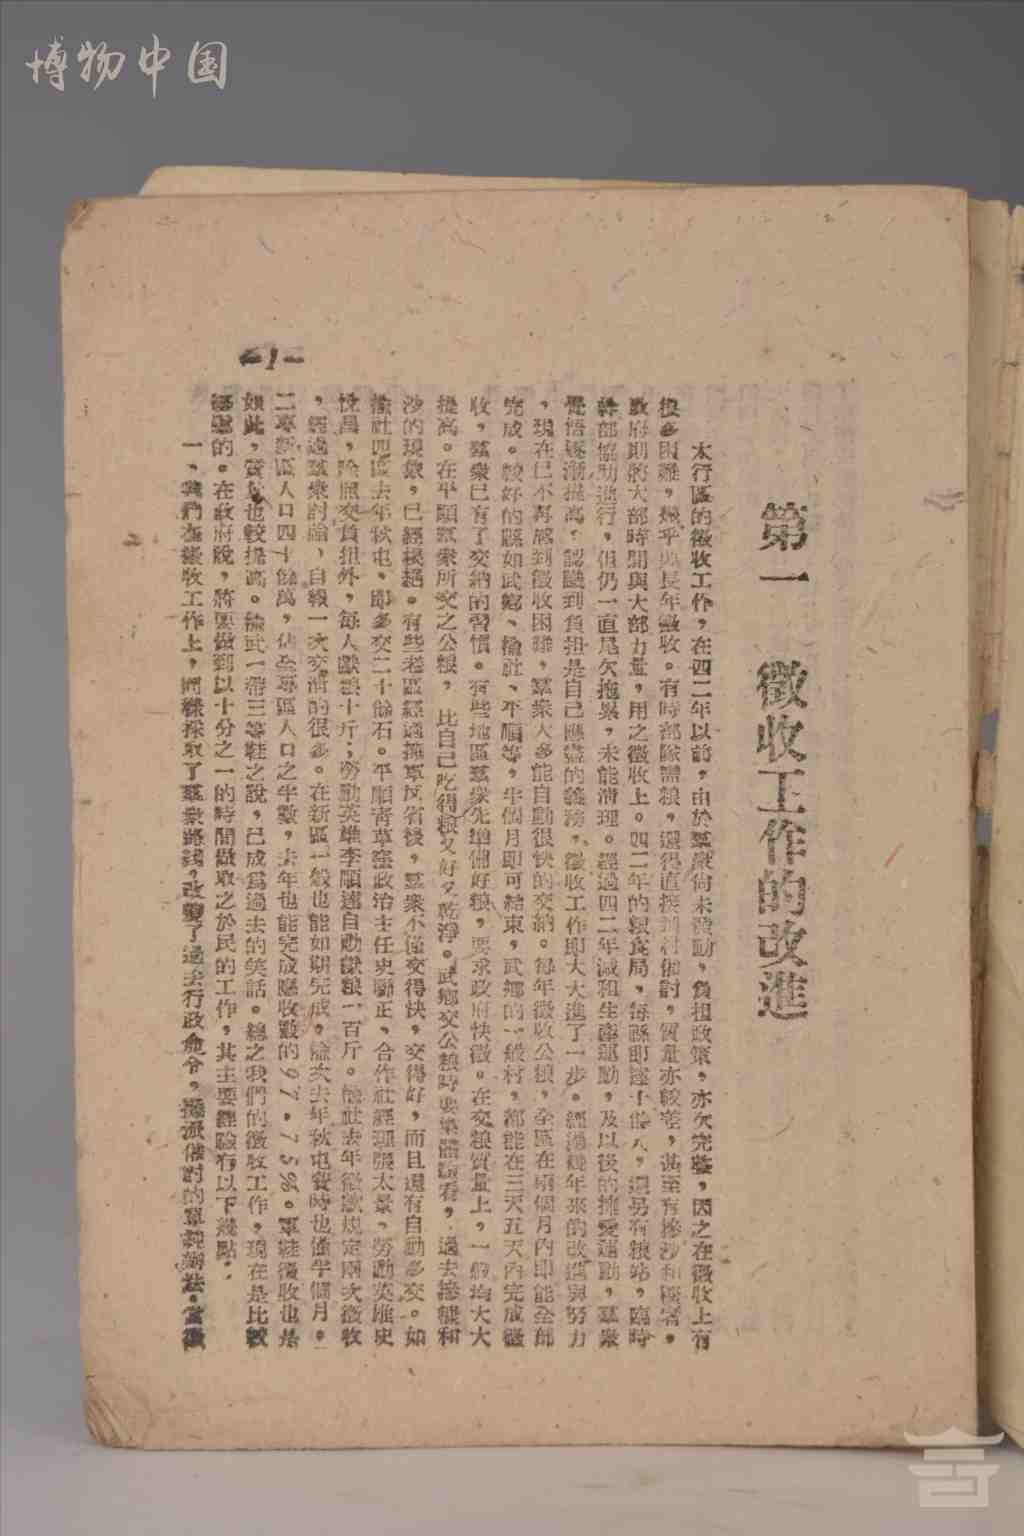 博物中国
第一 徵收工作的改進
太行區的徵收工作，在四二年以前，由於羣衆尚未發動，負担政策，亦欠完整，因之在徵收上有
很多困難，幾乎與長年徵收。有時部隊需粮，還得直接到村催討，質量亦較差，甚至有摻沙和
政府期將大部時間與大部力量，用之徵收上。四二年的粮食局，每縣即達十餘人，還另有粮站，臨時
幹部協助進行，但仍一直尾欠拖累，未能清理。經過四二年減租生產運動，及以後的擁愛運動，羣衆
覺悟逐漸提高，認識到負担是自己應盡的義務，徵收工作即大大進了一步。經過幾年來的改進與努力
，現在已不再感到徵收困難，羣衆大多能自動很快的交納。每年徵收公粮，全區在兩個月內即能全部
完成。較好的縣如武鄉、榆社、平順等，半個月即可結束，武鄉的一般村，都能在三天五天內完成徵
收，羣衆已有了交納的習慣。有些地區羣衆先準備好粮，要求政府快徵。在交粮質量上，一般均大大
提高。在平順羣衆所交之公粮，比自己吃得粮又好又乾淨。武鄉交公粮時要集體篩看，過去摻糠和
沙的現象，已經根絕。有些老區經過擁軍反省後，羣衆不僅交得快，交得好，而且還有自動多交。如
榆社四區去年秋屯，即多交二十餘石。平順青草窪政治主任史聯正、合作社經理張太景、勞動英雄史
悅昌，除照交負担外，每人獻粮十斤；勞動英雄李順達自動獻粮一百斤。榆社去年徵款規定兩次徵收
，經過羣衆討論，自報一次交清的很多。在新區一般也能如期完成，榆次去年秋屯費時也僅半個月。
二專新區人口四十餘萬，佔全專區人口之半數，去年也能完成應收數的97.75%。軍鞋徵收也是
如此，質量也較提高。榆武一帶三等鞋之說，已成爲過去的笑話。總之我們的徵收工作，現在是比較
的。在政府說，將要做到以十分之一的時間做取之於民的工作，其主要經驗有以下幾點：
一、我們在徵收工作上，開繰採取了羣衆路綫，改變了過去行政命令，攤派催討的單純辦法。當徵
—1—